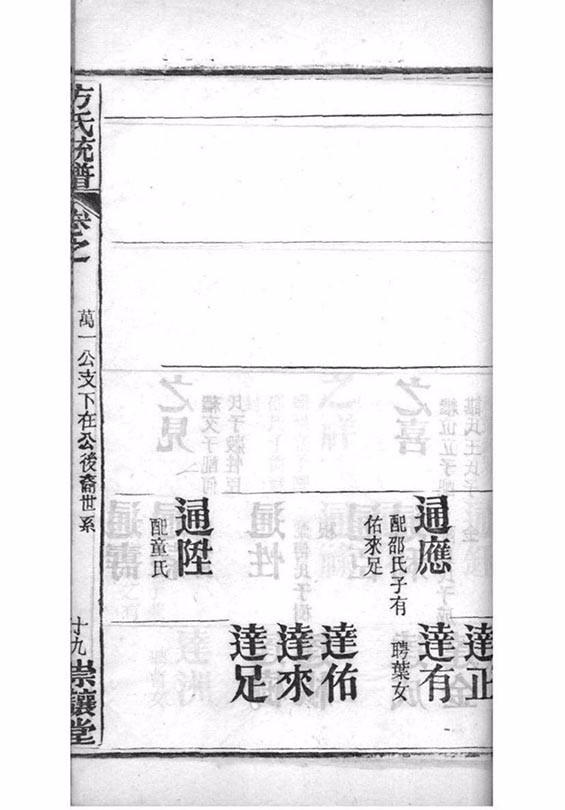 達正
通應
配邵氏子有
佑來足
達有
聘葉女
達佑
達來
達足
通陞
配童氏
方氏統譜
卷之
萬一公支下在公後裔世系
十九
崇讓堂